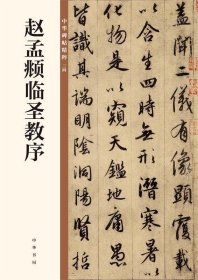 赵孟頫临圣教序
中华碑帖精粹
中华书局
蓋聞二儀有像顯覆載
以含生四時無形潛寒暑以
化物是以窺天鑑地庸愚
皆識其端明陰洞陽賢哲